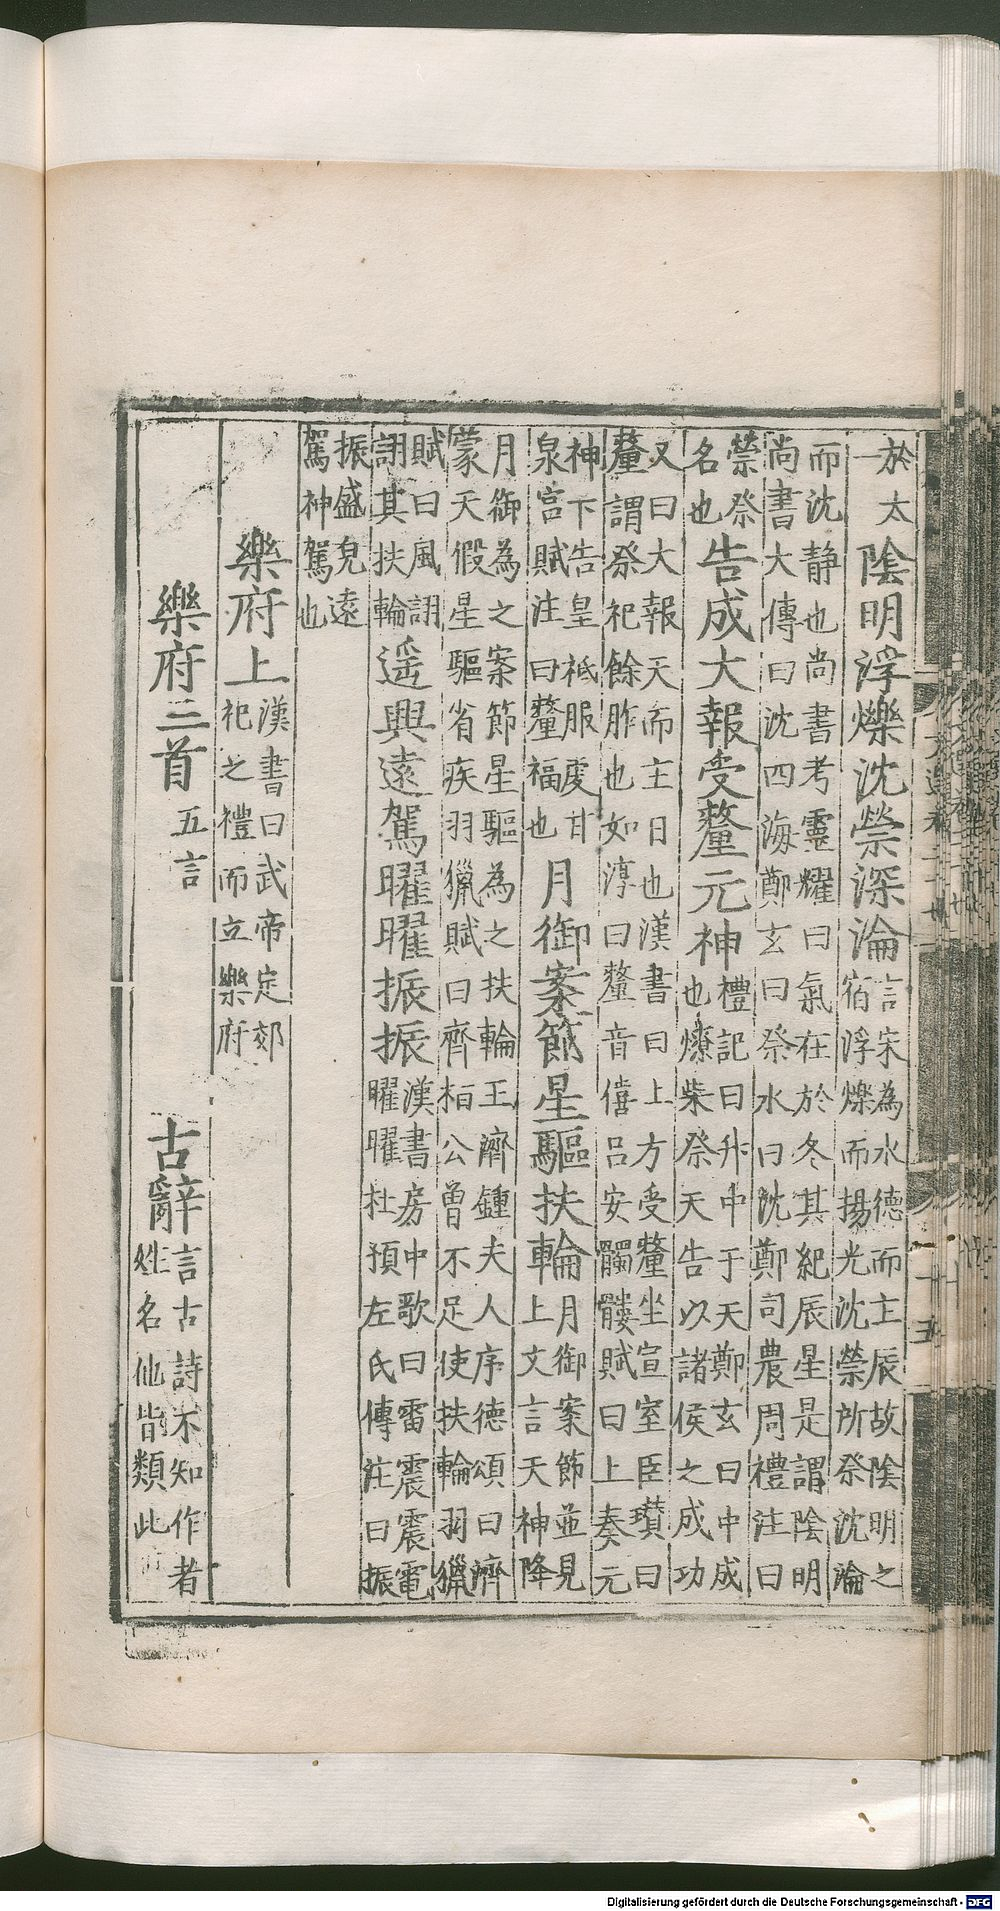 於太
一
陰明浮爍沈禜深淪
言宋為水德而主辰故陰明之
宿浮爍而揚光沈禜所祭沈淪
而沈静也尚書考靈耀曰氣在於冬其紀辰星是謂陰明
尚書大傳曰沈四海鄭玄曰祭水曰沈鄭司農周禮注曰
禜祭
名也
告成大報受釐元神
禮記曰升中于天鄭玄曰中成
也燎柴祭天告以諸侯之成功
又曰大報天而主日也漢書曰上方受釐坐宣室臣瓚曰
釐謂祭祀餘胙也如淳曰釐音僖呂安髑髏賦曰上奏元
神下告皇祗服虔甘
泉宮賦注曰釐福也
月御案節星驅扶輪
月御案節並見
上文言天神降
月御為之案節星驅為之扶輪王濟鍾夫人序德頌曰濟
蒙天假星驅省疾羽獵賦曰齊桓公曾不足使扶輪羽獵
賦曰風詡
詡其扶輪
遥興遠駕曜曜振振
漢書房中歌曰雷震震電
曜曜杜預左氏傳注曰振
振盛皃遠
駕神駕也
樂府上
漢書曰武帝定郊
祀之禮而立樂府
樂府三首五言 古辭
言古詩不知作者
姓名他皆類此
Digitalisierung gefördert durch die Deutsche Forschungsgemeinschaft - DFG